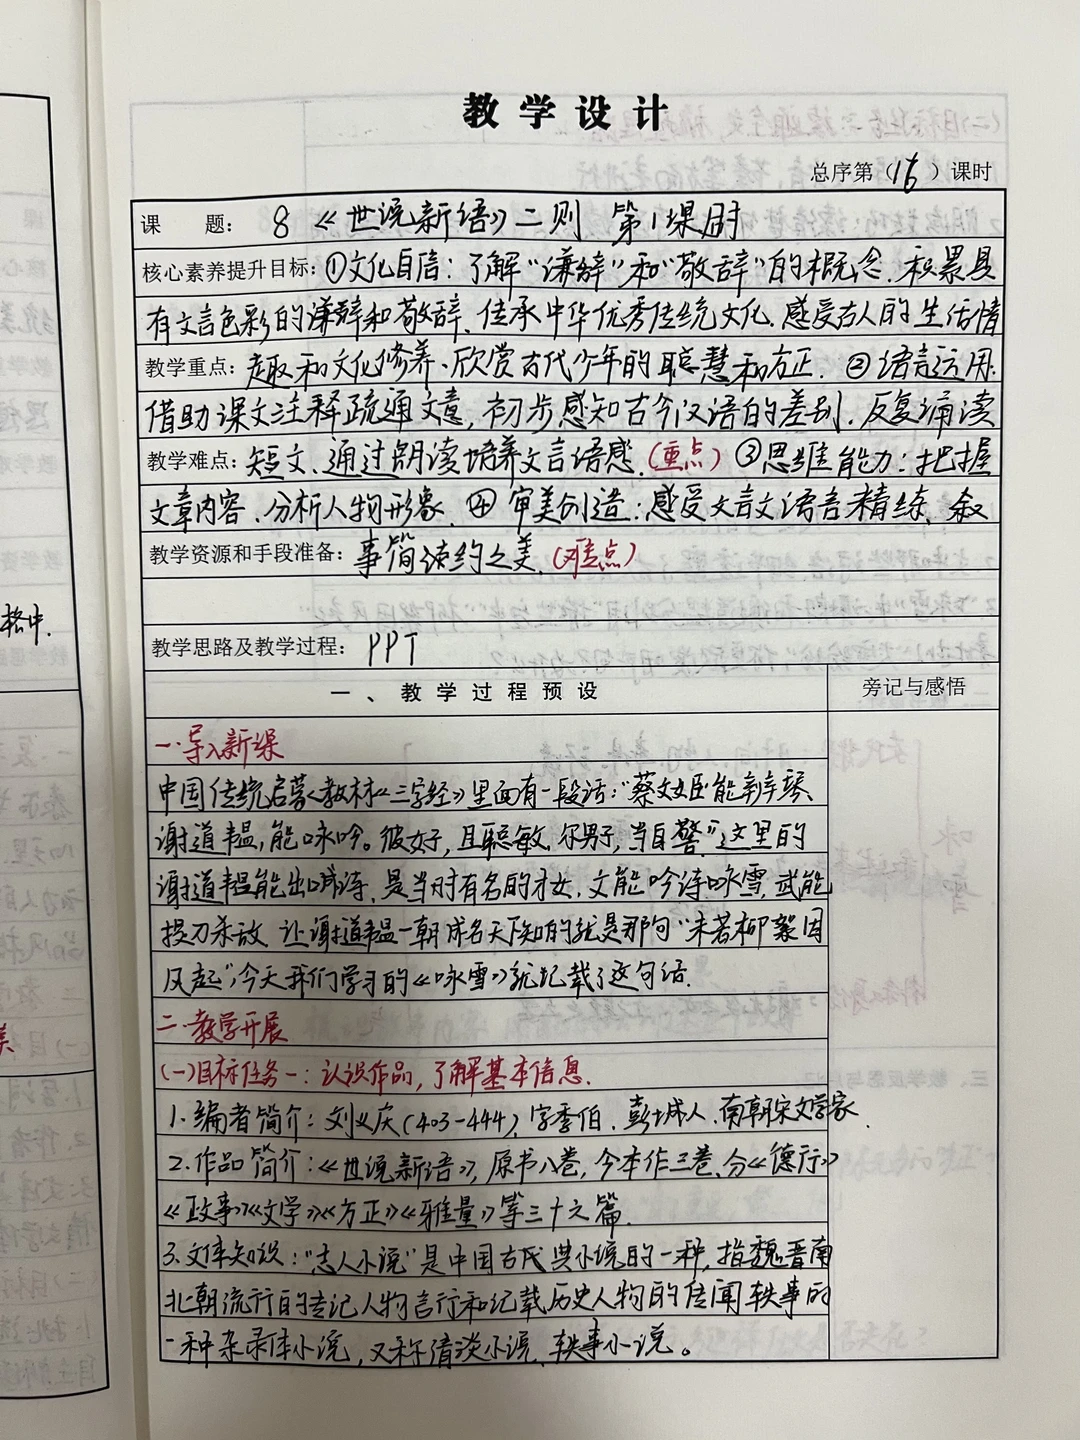 教学设计
总序第（16）课时
课 题：8《世说新语》二则 第1课时
核心素养提升目标：①文化自信：了解“谦辞”和“敬辞”的概念，积累具
有文言色彩的谦辞和敬辞，传承中华优秀传统文化，感受古人的生活情
教学重点：趣和文化修养、欣赏古代少年的聪慧和方正．②语言运用：
借助课文注释疏通文意，初步感知古今汉语的差别，反复诵读
教学难点：短文、通过朗读培养文言语感．（重点）③思维能力：把握
文章内容、分析人物形象．④审美创造：感受文言文语言精练、叙
教学资源和手段准备：事简洁约之美（难点）
教学思路及教学过程：PPT
一、教学过程预设
旁记与感悟
一．导入新课
中国传统启蒙教材《三字经》里面有一段话：“蔡文姬能辨琴、
谢道韫，能咏吟。彼女子，且聪敏，尔男子，当自警”这里的
谢道韫能出成诗，是当时有名的才女，文能吟诗咏雪，武能
提刀杀敌 让谢道韫一朝成名天下知的就是那句“未若柳絮因
风起”，今天我们学习的《咏雪》就记载了这句话．
二．教学开展
（一）目标任务一：认识作品，了解基本信息．
1．编者简介：刘义庆（403-444），字季伯，彭城人，南朝宋文学家．
2．作品简介：《世说新语》，原书八卷，今本作三卷，分《德行》
《政事》《文学》《方正》《雅量》等三十六篇．
3．文体知识：“志人小说”是中国古代 小说的一种，指魏晋南
北朝流行的专记人物言行和记载历史人物的传闻轶事的
一种杂录体小说，又称清谈小说、轶事小说。
格中．
美